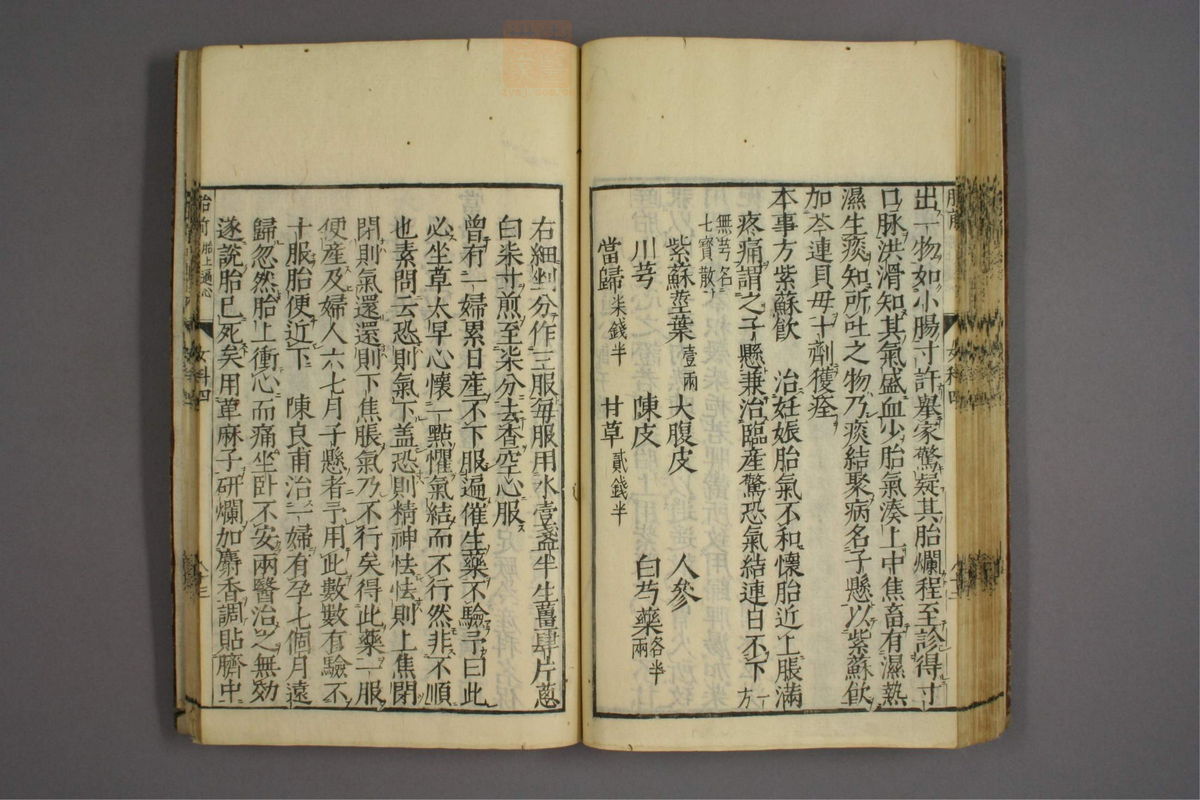 出一物如小腸寸許舉家驚疑其胎爛程至診得寸
口脉洪滑知其氣盛血少胎氣湊上中焦畜有濕熱
濕生痰知所吐之物乃痰結聚病名子懸以紫蘇飲
加芩連貝毋十劑獲痊
本事方紫蘇飲 治妊娠胎氣不和懷胎近上脹滿
疼痛謂之子懸兼治臨產驚恐氣結連日不下 一方
無芎名
七寶散
紫蘇莖葉壹兩 大腹皮 人參
川芎 陳皮 白芍藥各半兩
當歸柒錢半 甘草貳錢半
右細剉分作三服每服用水壹盞半生薑肆片蔥
白柒寸煎至柒分去査空心服
曾有一婦累日產不下服遍催生藥不驗予曰此
必坐草太早心懷一點懼氣結而不行然非不順
也素問云恐則氣下盖恐則精神怯怯則上焦閉
閉則氣還還則下焦脹氣乃不行矣得此藥一服
便產及婦人六七月子懸者予用此數數有驗不
十服胎便近下 陳良甫治一婦有孕七個月遠
歸忽然胎上衝心而痛坐卧不安兩醫治之無効
遂說胎已死矣用萆麻子研爛加麝香調貼臍中
胎前 胎上逼心
女科四